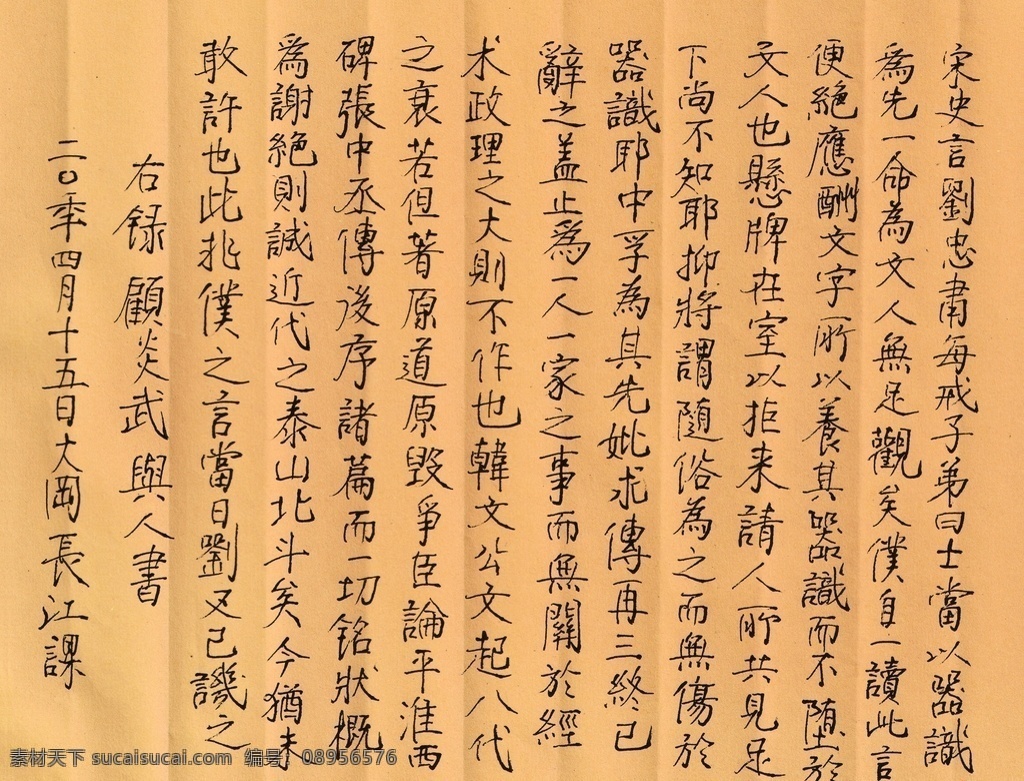 宋史言劉忠肅每戒子弟曰士當以器識
為先一命為文人無足觀矣僕自一讀此言
便絕應酬文字所以養其器識而不墮於
文人也懸牌在室以拒来請人所共見足
下尚不知耶抑將謂隨俗為之而無傷於
器識耶中孚為其先妣求傳再三終已
辭之蓋止為一人一家之事而無關於經
术政理之大則不作也韓文公文起八代
之衰若但著原道原毀爭臣論平淮西
碑張中丞傳後序諸篇而一切銘狀概
為謝絕則誠近代之泰山北斗矣今猶未
敢許也此非僕之言當日劉叉已譏之
右録顧炎武與人書
二〇季四月十五日大岡長江課
素材天下 sucaisucai.com 编号：08956576